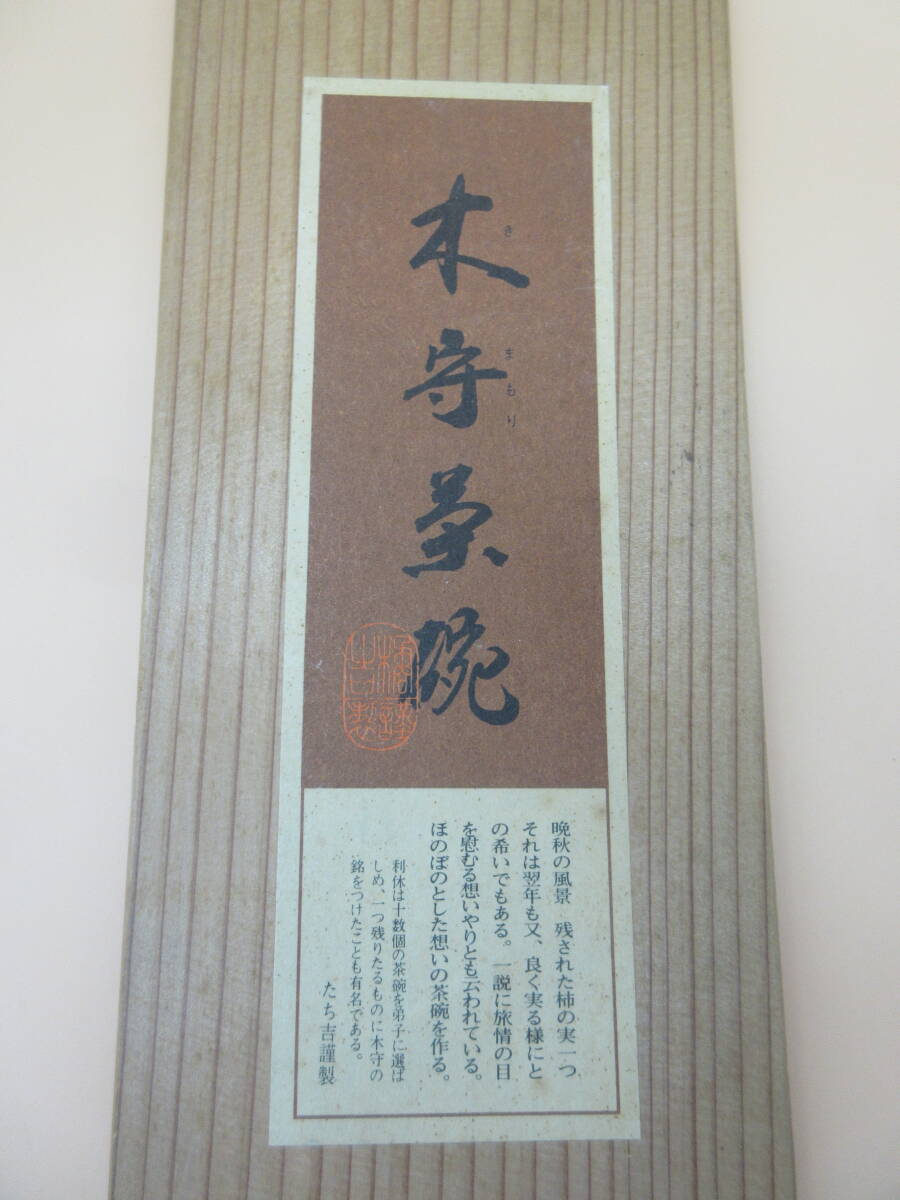 木守茶碗
き
まもり
橘謹
吉製
晩秋の風景　残された柿の実一つ
それは翌年も又、良く実る様にと
の希いでもある。一説に旅情の目
を慰むる想いやりとも云われている。
ほのぼのとした想いの茶碗を作る。
利休は十数個の茶碗を弟子に選ば
しめ、一つ残りたるものに木守の
銘をつけたことも有名である。
たち吉謹製